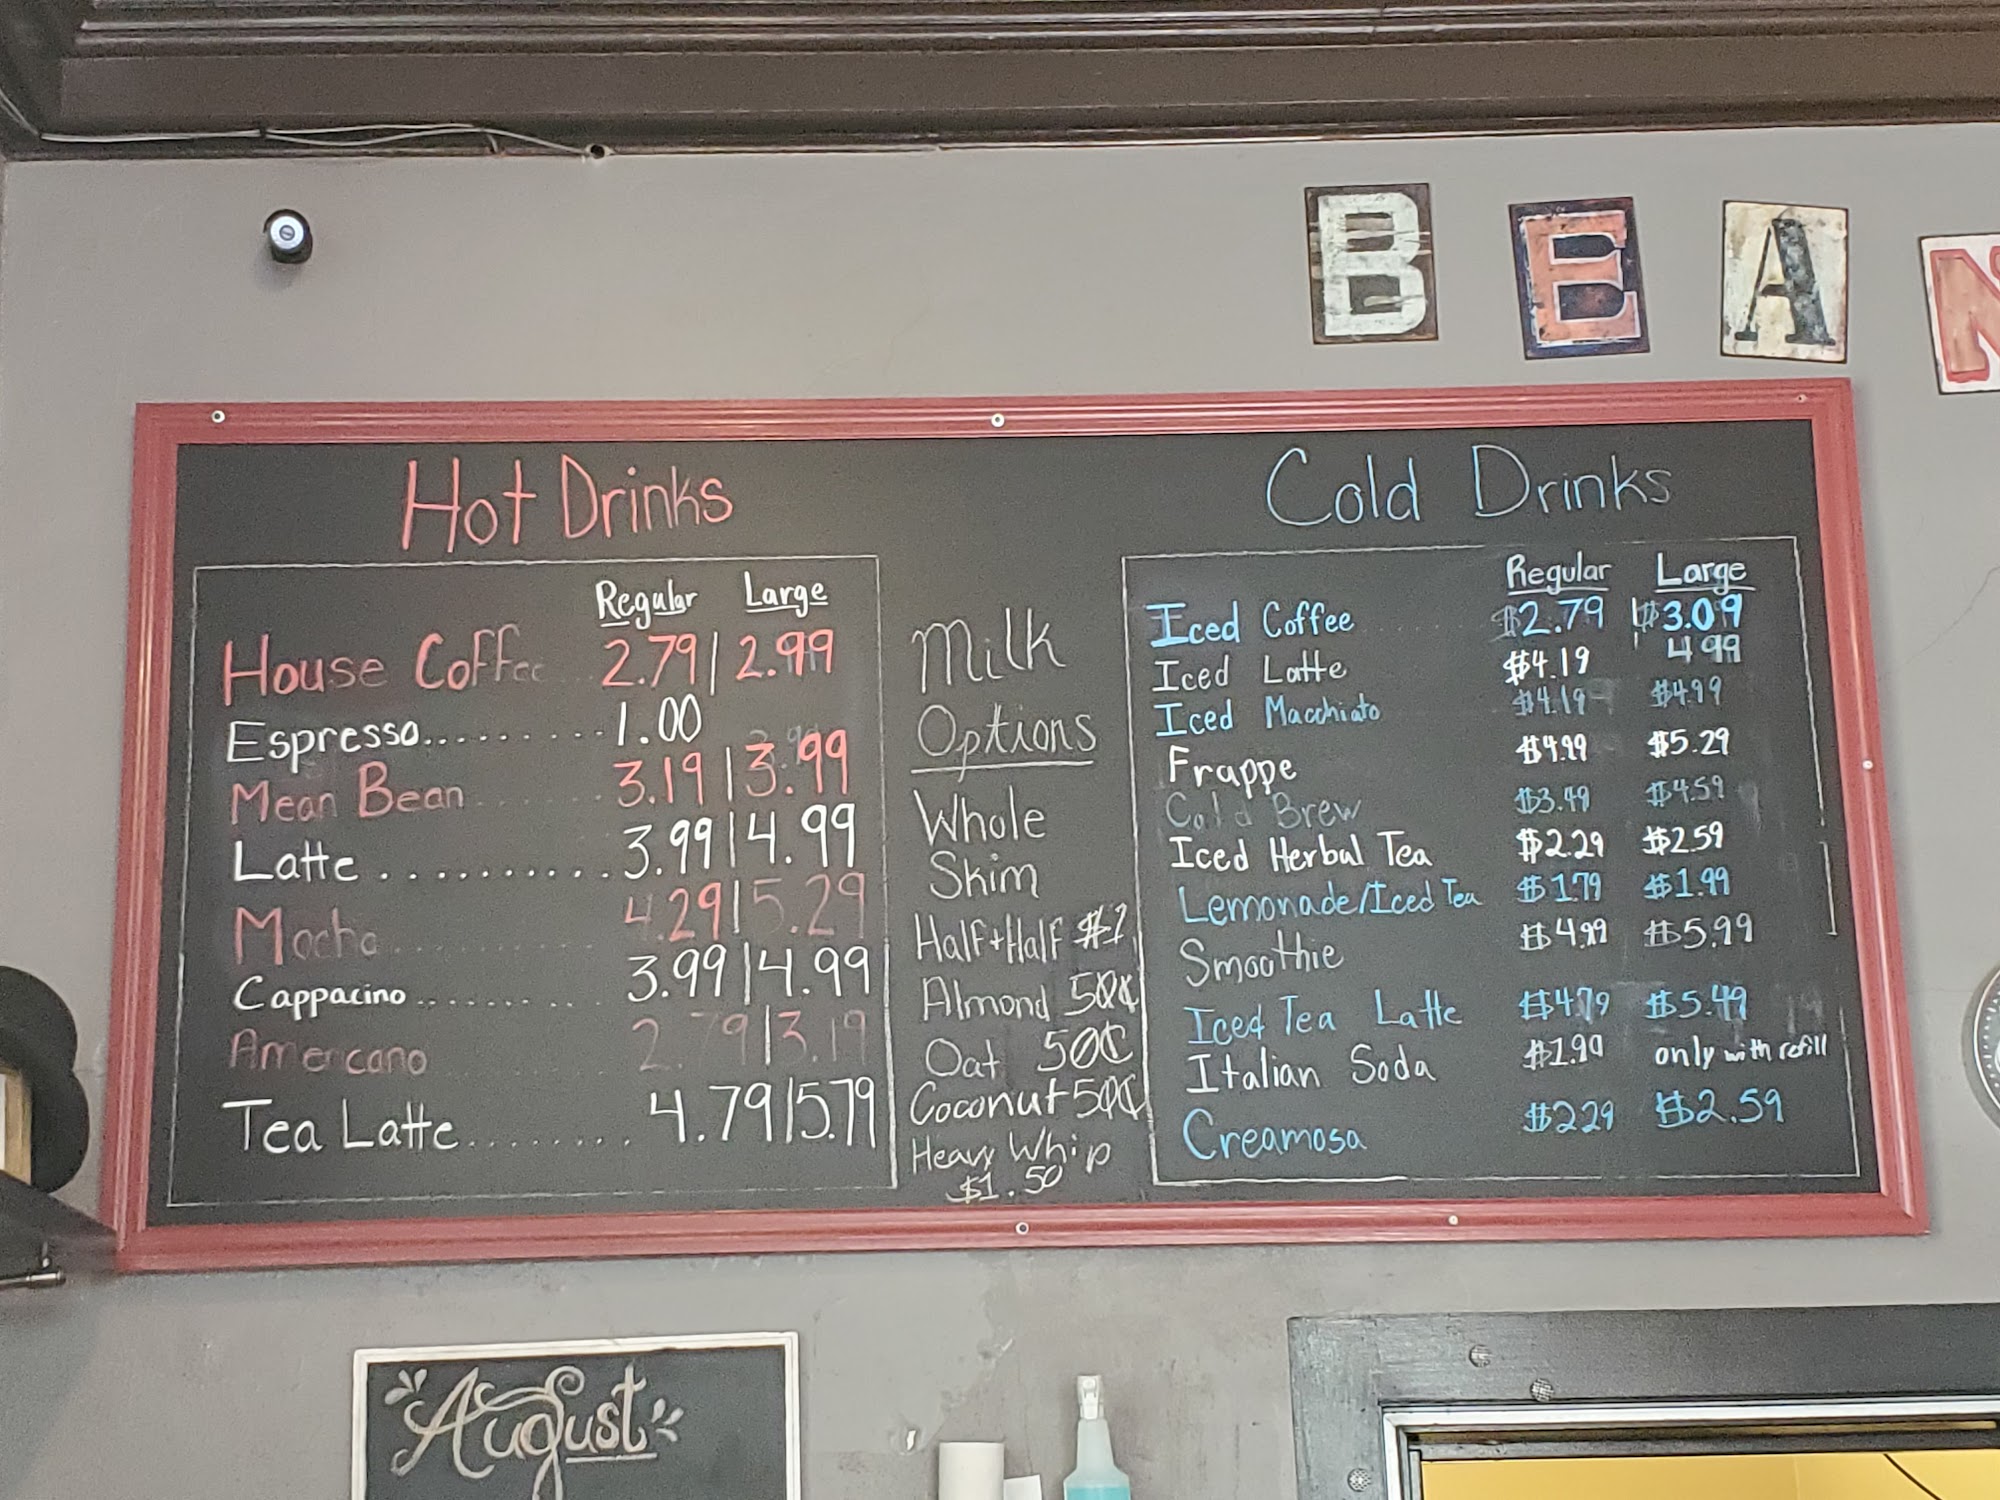 BEAN
Hot Drinks
Regular Large
House Coffee 2.79 | 2.99
Espresso......... 1.00
Mean Bean ........ 3.19 | 3.99
Latte .......... 3.99 | 4.99
Mocha .......... 4.29 | 5.29
Cappacino ........ 3.99 | 4.99
Americano 2.79 | 3.19
Tea Latte ........ 4.79 | 5.79
Milk
Options
Whole
Skim
Half+Half $1
Almond 50¢
Oat 50¢
Coconut 50¢
Heavy Whip
$1.50
Cold Drinks
Regular Large
Iced Coffee $2.79 $3.09
Iced Latte $4.19 4.99
Iced Macchiato $4.19 $4.99
Frappe $4.99 $5.29
Cold Brew $3.49 $4.59
Iced Herbal Tea $2.29 $2.59
Lemonade/Iced Tea $1.79 $1.99
Smoothie $4.99 $5.99
Iced Tea Latte $4.79 $5.49
Italian Soda $1.99 only with refill
Creamosa $2.29 $2.59
August